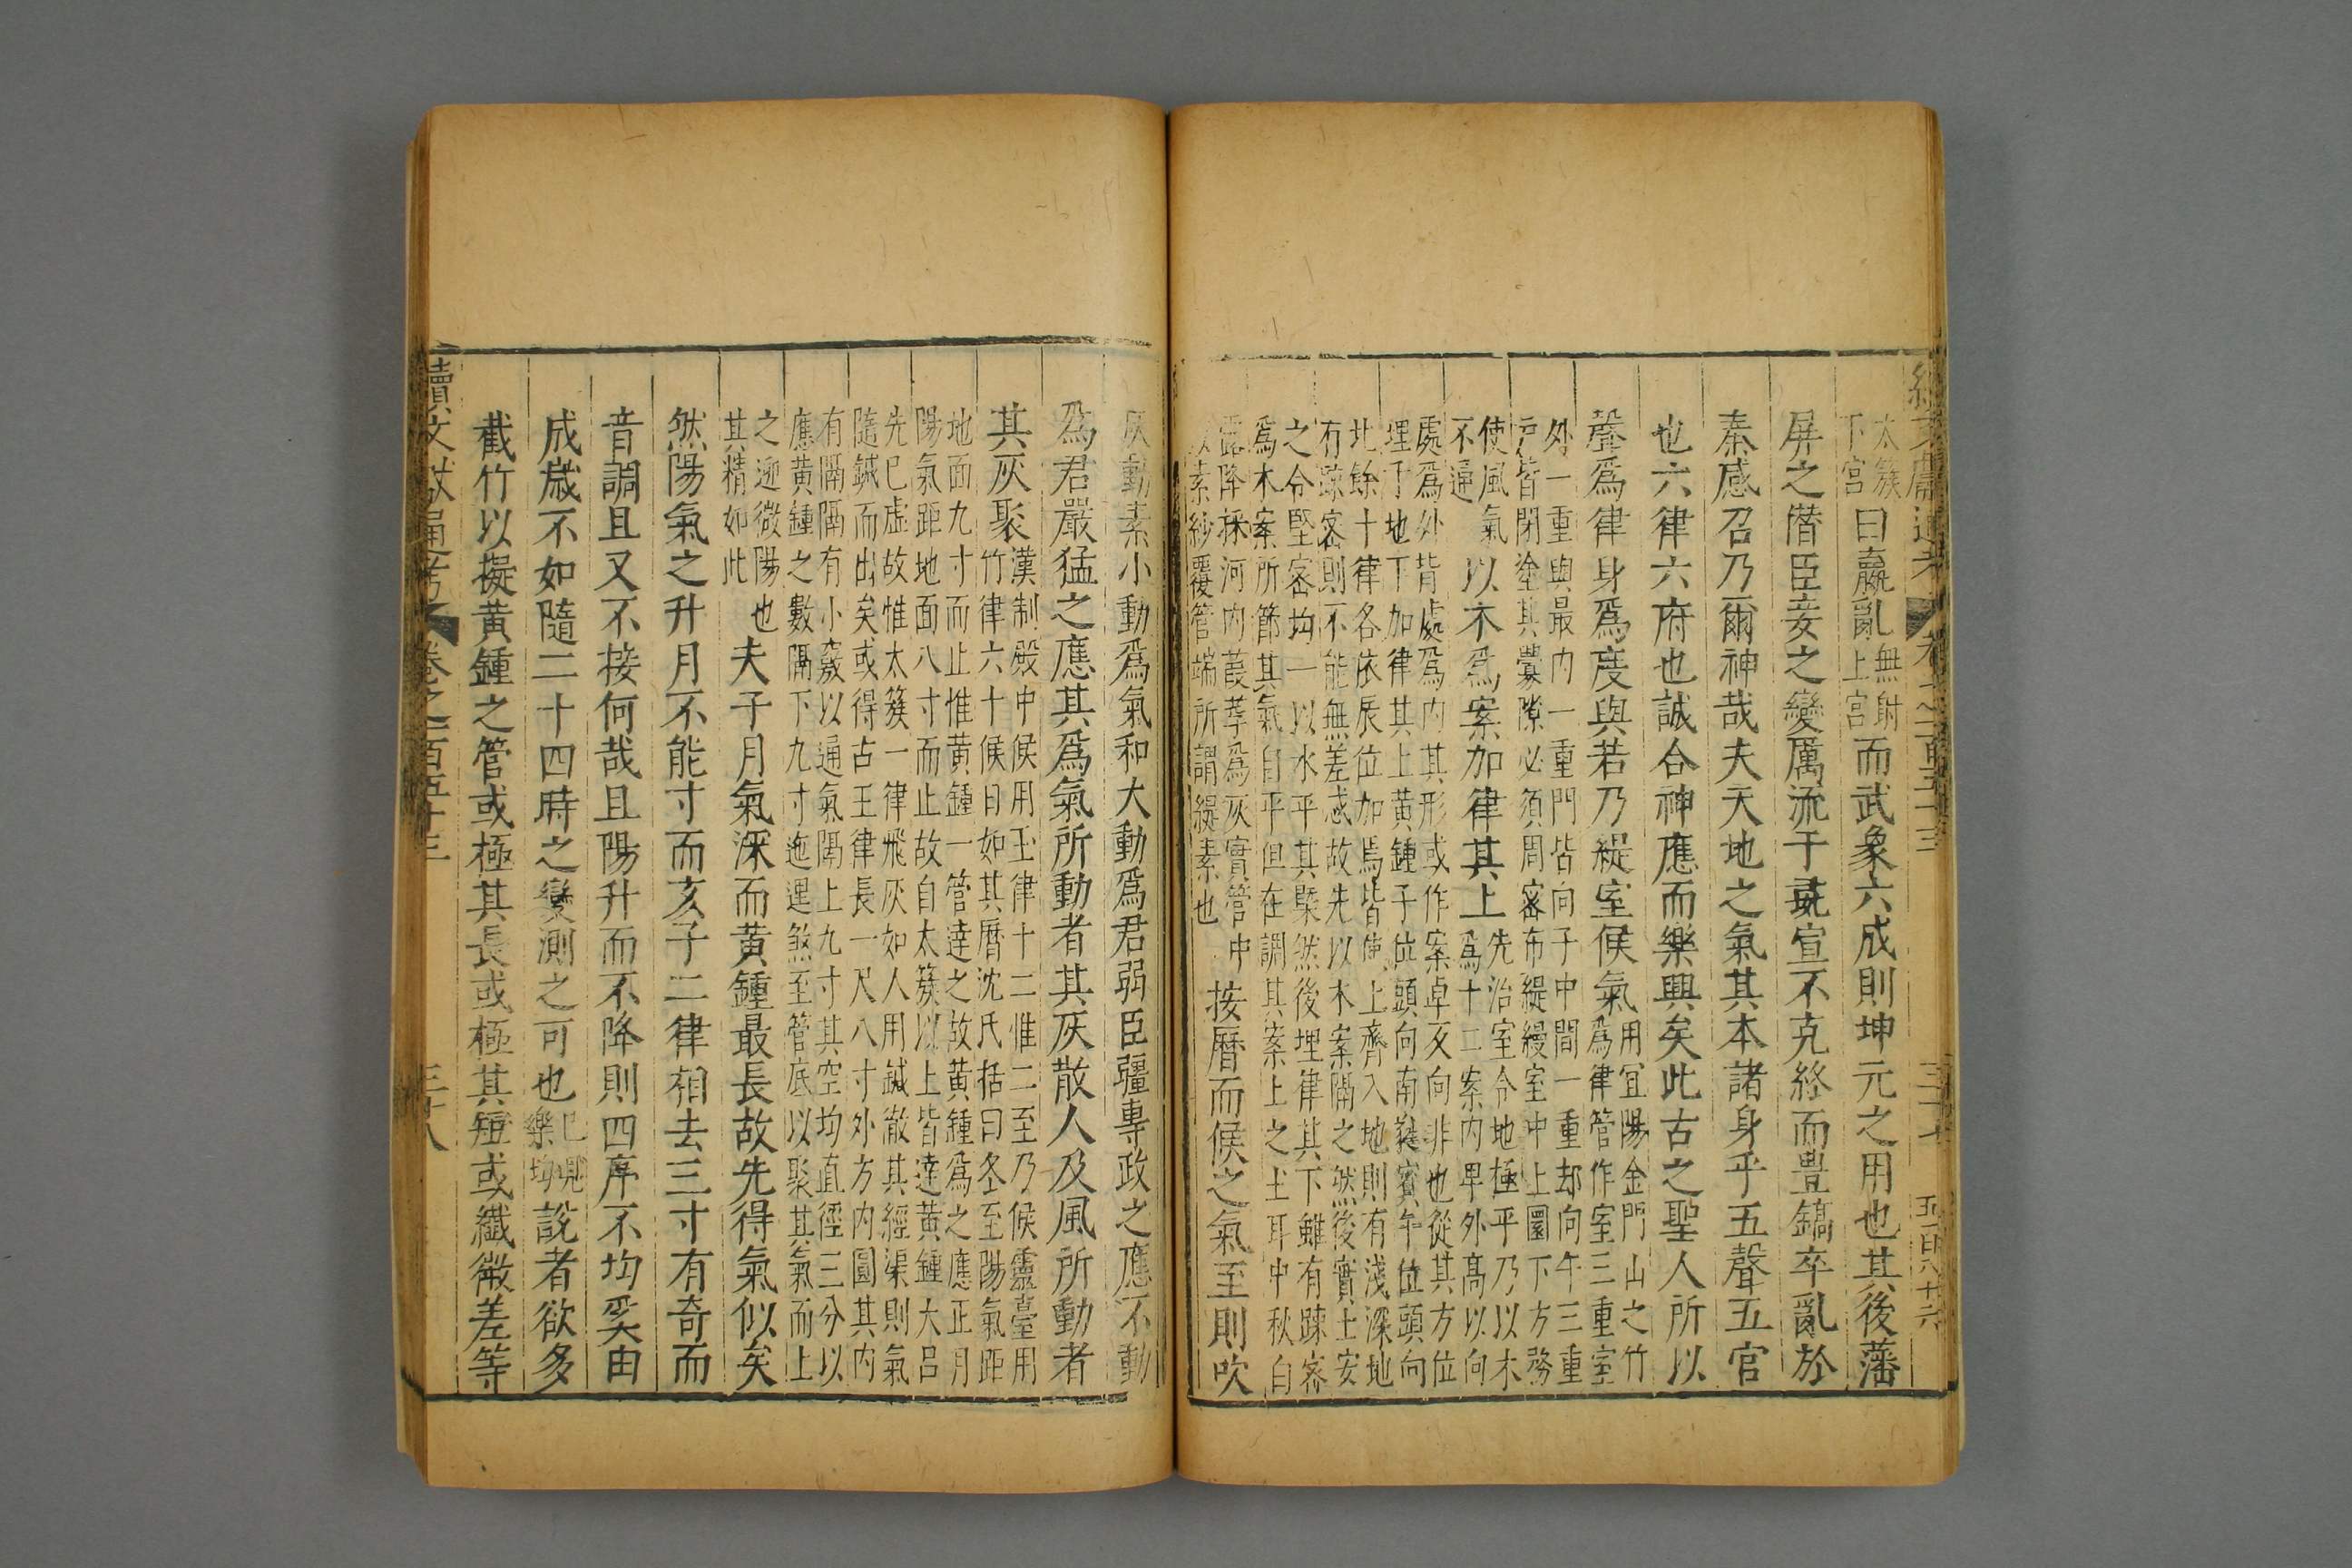 續文獻通考 卷之一百五十三 三十七 五百八十六
太簇
下宮
曰嬴亂
無射
上宮
而武象六成則坤元之用也其後藩
屏之僭臣妾之變厲流于彘宣不克終而豊鎬卒亂於
秦感召乃爾神哉夫天地之氣其本諸身乎五聲五官
也六律六府也誠合神應而樂興矣此古之聖人所以
聲爲律身爲度與若乃緹室候氣
用冝陽金門山之竹
爲律管作室三重室
外一重與最内一重門皆向子中間一重却向午三重
戸皆閉塗其釁隙必須周密布緹縵室中上圜下方務
使風氣
不通
以木爲案加律其上
先治室令地極平乃以木
爲十二案内卑外高以向
處爲外背處爲内其形或作案卓亥向非也從其方位
埋于地下加律其上黄鍾子位頭向南蕤賓午位頭向
北餘十律各依辰位加焉皆使上齊入地則有淺深地
有踈密則不能無差忒故先以木案隔之然後實土安
之令堅密均一以水平其槩然後埋律其下雖有踈密
爲木案所節其氣自平但在調其案上之土耳中秋白
露降採河内葭莩爲灰實管中
以素紗覆管端所謂緹素也
按曆而候之氣至則吹
灰動素小動爲氣和大動爲君弱臣彊專政之應不動
爲君嚴猛之應其爲氣所動者其灰散人及風所動者
其灰聚
漢制殿中候用玉律十二惟二至乃候靈臺用
竹律六十候日如其曆沈氏括曰冬至陽氣距
地面九寸而止惟黄鍾一管達之故黄鍾爲之應正月
陽氣距地面八寸而止故自太簇以上皆達黄鍾大呂
先巳虛故惟太簇一律飛灰如人用鍼徹其經渠則氣
隨鍼而出矣或得古王律長一尺八寸外方内圓其内
有隔隔有小竅以通氣隔上九寸其空均直徑三分以
應黄鍾之數隔下九寸迤邐煞至管底以聚其氣而上
之迎微陽也
其精如此
夫子月氣深而黄鍾最長故先得氣似矣
然陽氣之升月不能寸而亥子二律相去三寸有奇而
音調且又不接何哉且陽升而不降則四序不均奚由
成歲不如隨二十四時之變測之可也
巳覗
樂均
說者欲多
截竹以擬黄鍾之管或極其長或極其短或纖微差等
續文獻通考 卷之一百五十三 三十八